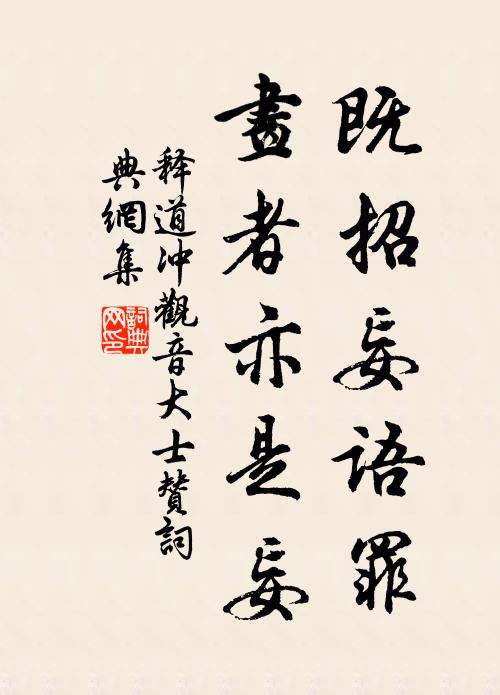 既招妄語罪
畫者亦是妄
释道冲觀音大士賛詞
典網集
詞典网印